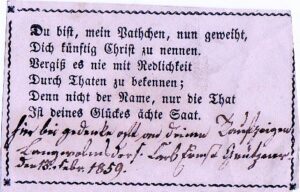 Du bist, mein Pathchen, nun geweiht,
Dich künftig Christ zu nennen.
Vergiß es nie mit Redlichkeit
Durch Thaten zu bekennen;
Denn nicht der Name, nur die That
Ist deines Glückes ächte Saat.
hier bei gedenke oft an deinen Taufzeugen
Ernst
den 13. Febr. 1859.